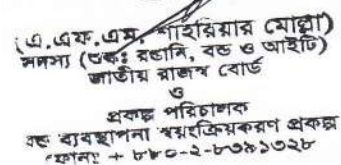 (এ.এফ.এম. শাহরিয়ার মোল্লা)
সদস্য (শুল্ক: রপ্তানি, বন্ড ও আইটি)
জাতীয় রাজস্ব বোর্ড
ও
প্রকল্প পরিচালক
বন্ড ব্যবস্থাপনা স্বয়ংক্রিয়করণ প্রকল্প
ফোনঃ + ৮৮০-২-৮৩৯১৩২৮